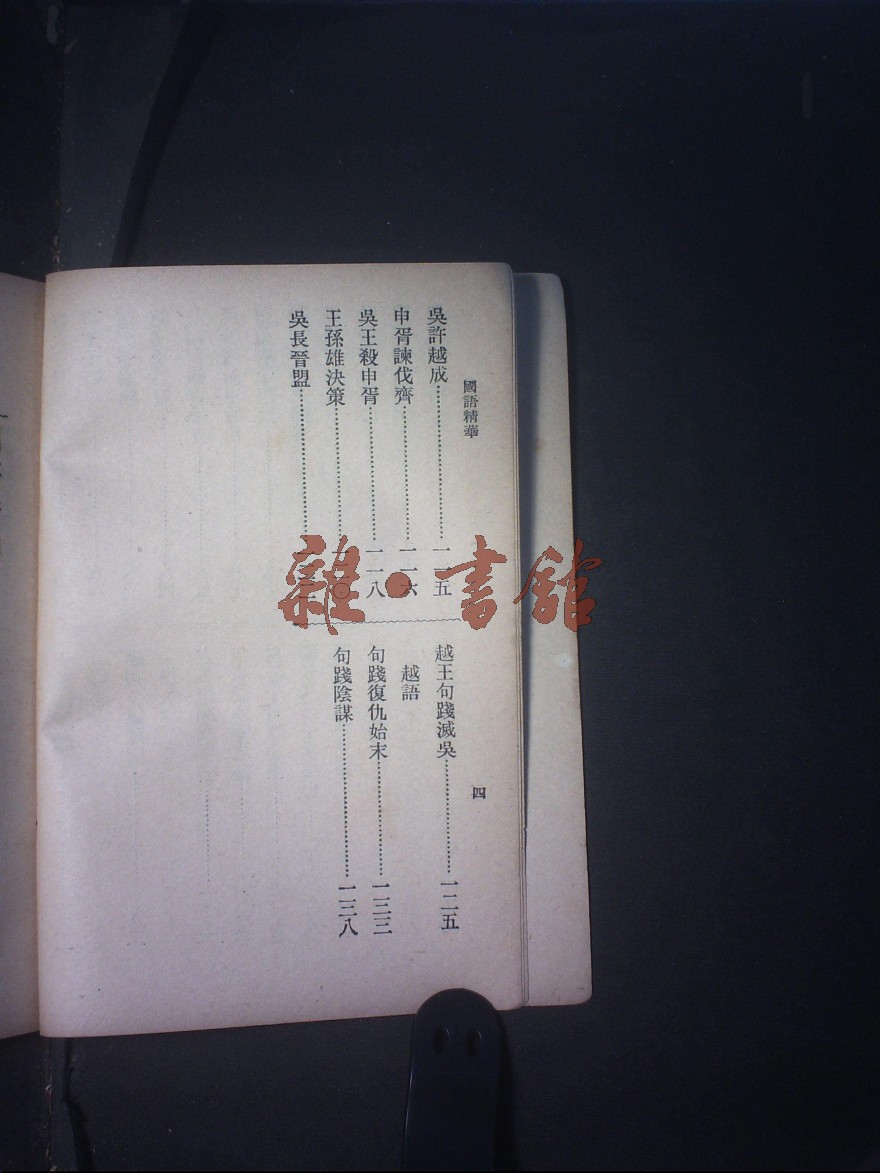 國語精華
四
吳許越成……一一五
申胥諫伐齊……一一六
吳王殺申胥……一一八
王孫雄決策
吳長晉盟
越王句踐滅吳……一二五
越語
句踐復仇始末……一三三
句踐陰謀……一三八
雜·書館